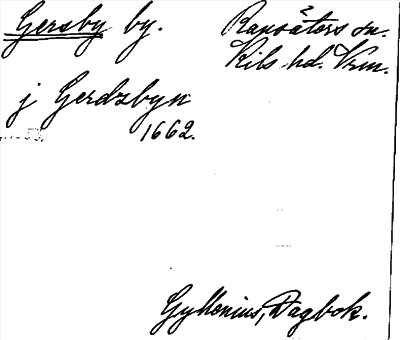 Gersby by. Ransäters sn.
Kils hd. Vrm.
j Gerdzbyn
1662.
Gyllenius, Dagbok.